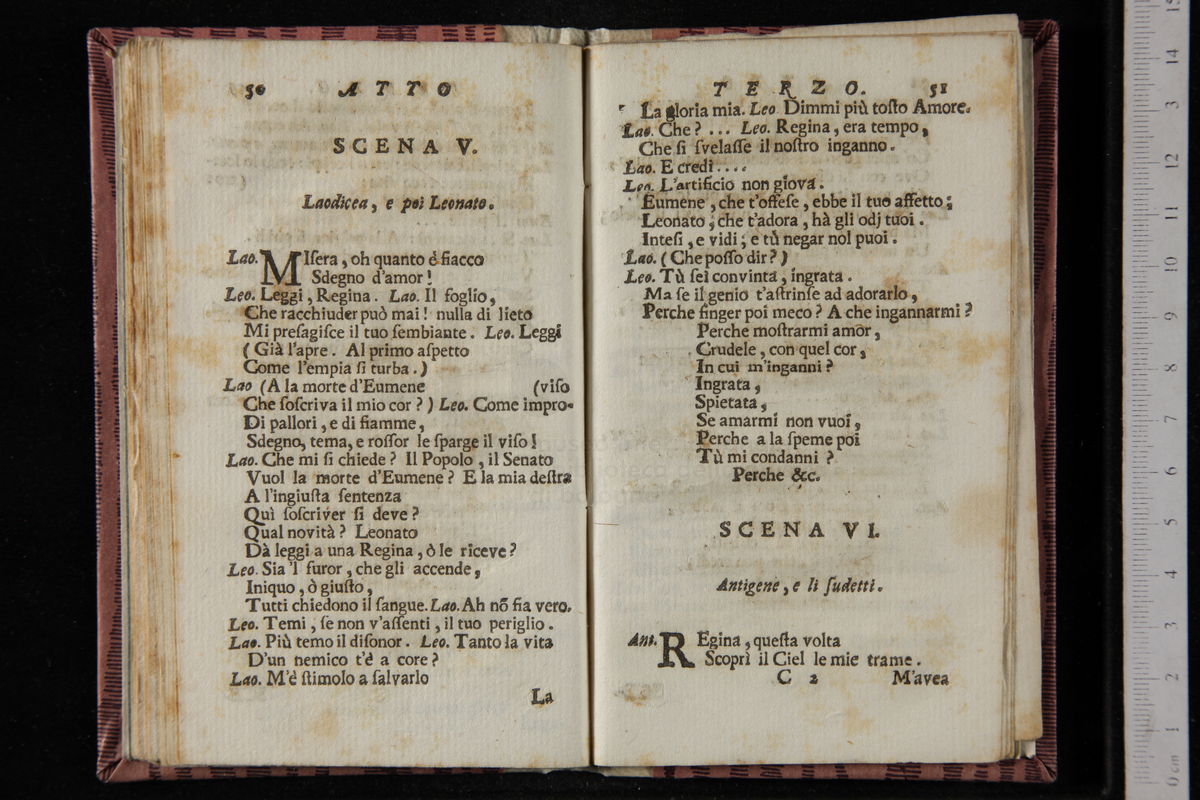 50 ATTO
SCENA V.
Laodicea, e poi Leonato.
Lao. MIsera, oh quanto è fiacco
Sdegno d'amor!
Leo. Leggi, Regina. Lao. Il foglio,
Che racchiuder può mai! nulla di lieto
Mi presagisce il tuo sembiante. Leo. Leggi
(Già l'apre. Al primo aspetto
Come l'empia si turba.)
Lao (A la morte d'Eumene (viso
Che soscriva il mio cor?) Leo. Come impro-
Di pallori, e di fiamme,
Sdegno, tema, e rossor le sparge il viso!
Lao. Che mi si chiede? Il Popolo, il Senato
Vuol la morte d'Eumene? E la mia destra
A l'ingiusta sentenza
Quì soscriver si deve?
Qual novità? Leonato
Dà leggi a una Regina, ò le riceve?
Leo. Sia 'l furor, che gli accende,
Iniquo, ò giusto,
Tutti chiedono il sangue. Lao. Ah nõ fia vero.
Leo. Temi, se non v'assenti, il tuo periglio.
Lao. Più temo il disonor. Leo. Tanto la vita
D'un nemico t'è a core?
Lao. M'è stimolo a salvarlo
La
TERZO. 51
La gloria mia. Leo Dimmi più tosto Amore.
Lao. Che? ... Leo. Regina, era tempo,
Che si svelasse il nostro inganno.
Lao. E credi....
Leo. L'artificio non giova.
Eumene, che t'offese, ebbe il tuo affetto;
Leonato, che t'adora, hà gli odj tuoi.
Intesi, e vidi; e tù negar nol puoi.
Lao. (Che posso dir?)
Leo. Tù sei convinta, ingrata.
Ma se il genio t'astrinse ad adorarlo,
Perche finger poi meco? A che ingannarmi?
Perche mostrarmi amor,
Crudele, con quel cor,
In cui m'inganni?
Ingrata,
Spietata,
Se amarmi non vuoi,
Perche a la speme poi
Tù mi condanni?
Perche &c.
SCENA VI.
Antigene, e li sudetti.
Ant. REgina, questa volta
Scoprì il Ciel le mie trame.
C 2 M'avea